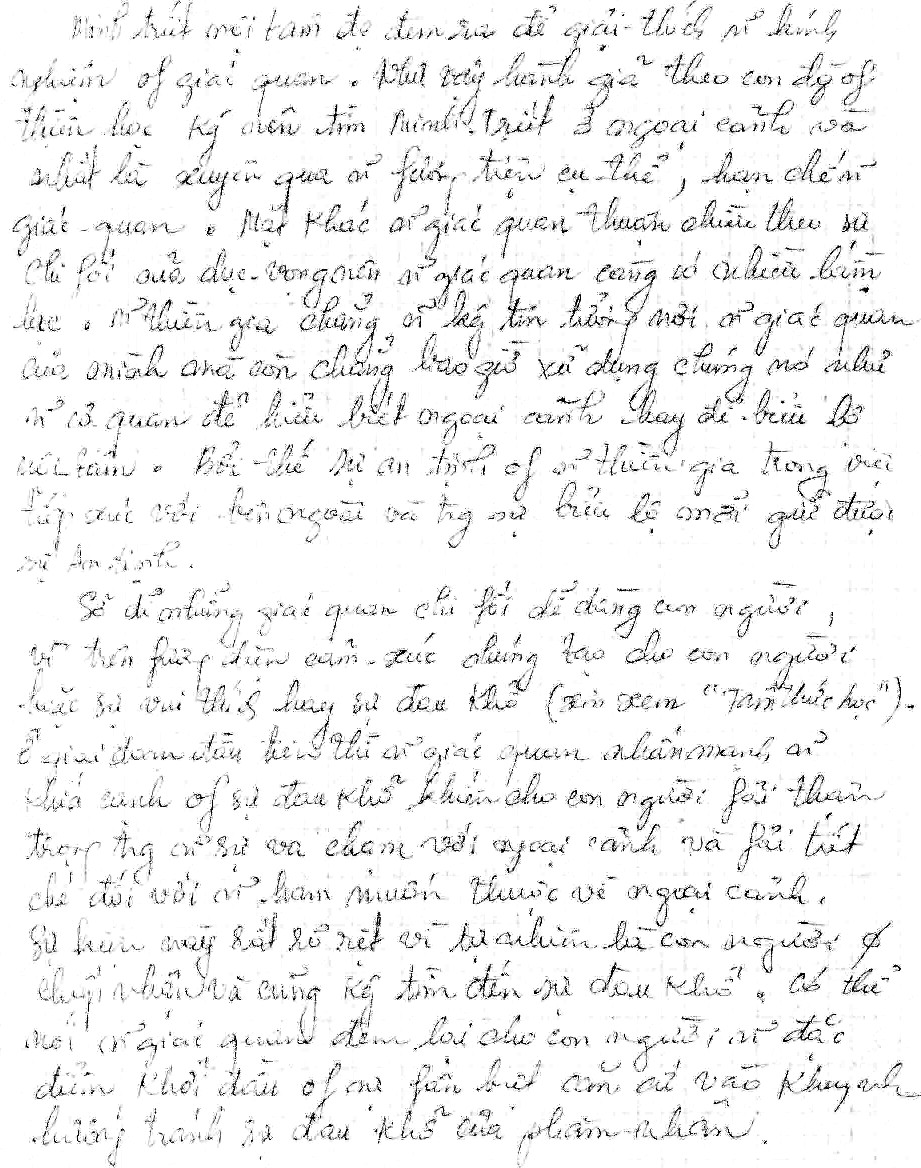 Minh triết nội tâm đc đem ra để giải-thích n~ kinh
nghiệm of giác quan. Như vậy hành giả theo con đg of
thiền học kg nên tìm Minh-Triết ở ngoại cảnh và
nhất là xuyên qua n~ fương tiện cụ-thể, hạn chế n~
giác-quan. Mặt khác n~ giác quan thuận chiều theo sự
chi fối của dục-vọng nên n~ giác quan càng có nhiều lầm
lạc. n~ thiền gia chẳng n~ kg tin tưởng nơi n~ giác quan
của mình mà còn chẳng bao giờ xử dụng chúng nó như
n~ cơ quan để hiểu biết ngoại cảnh hay để biểu lộ
nội tâm. Bởi thế sự an tịnh of n~ thiền gia trong việc
tiếp xúc với bên ngoài và trg sự biểu lộ mới giữ được
sự an tịnh.
Sở dĩ những giác quan chi fối dễ dàng con người,
vì trên fương diện cảm-xúc chúng tạo cho con người
hoặc sự vui thích hay sự đau khổ (xin xem "Tâm thức học").
Ở giai đoạn đầu tiên thì n~ giác quan nhấn mạnh n~
khía cạnh of sự đau khổ khiến cho con người fải thận
trọng trg n~ sự va chạm với ngoại cảnh và fải tiết
chế đối với n~ ham muốn thuộc về ngoại cảnh.
Sự kiện này rất rõ rệt vì tự nhiên là con người ∅
chấp nhận và cũng kg tìm đến sự đau khổ. Có thể
nói n~ giác quan đem lại cho con người n~ đặc
điểm khởi đầu of sự fân biệt căn cứ vào khuynh
hướng tránh sự đau khổ của phàm-nhân.